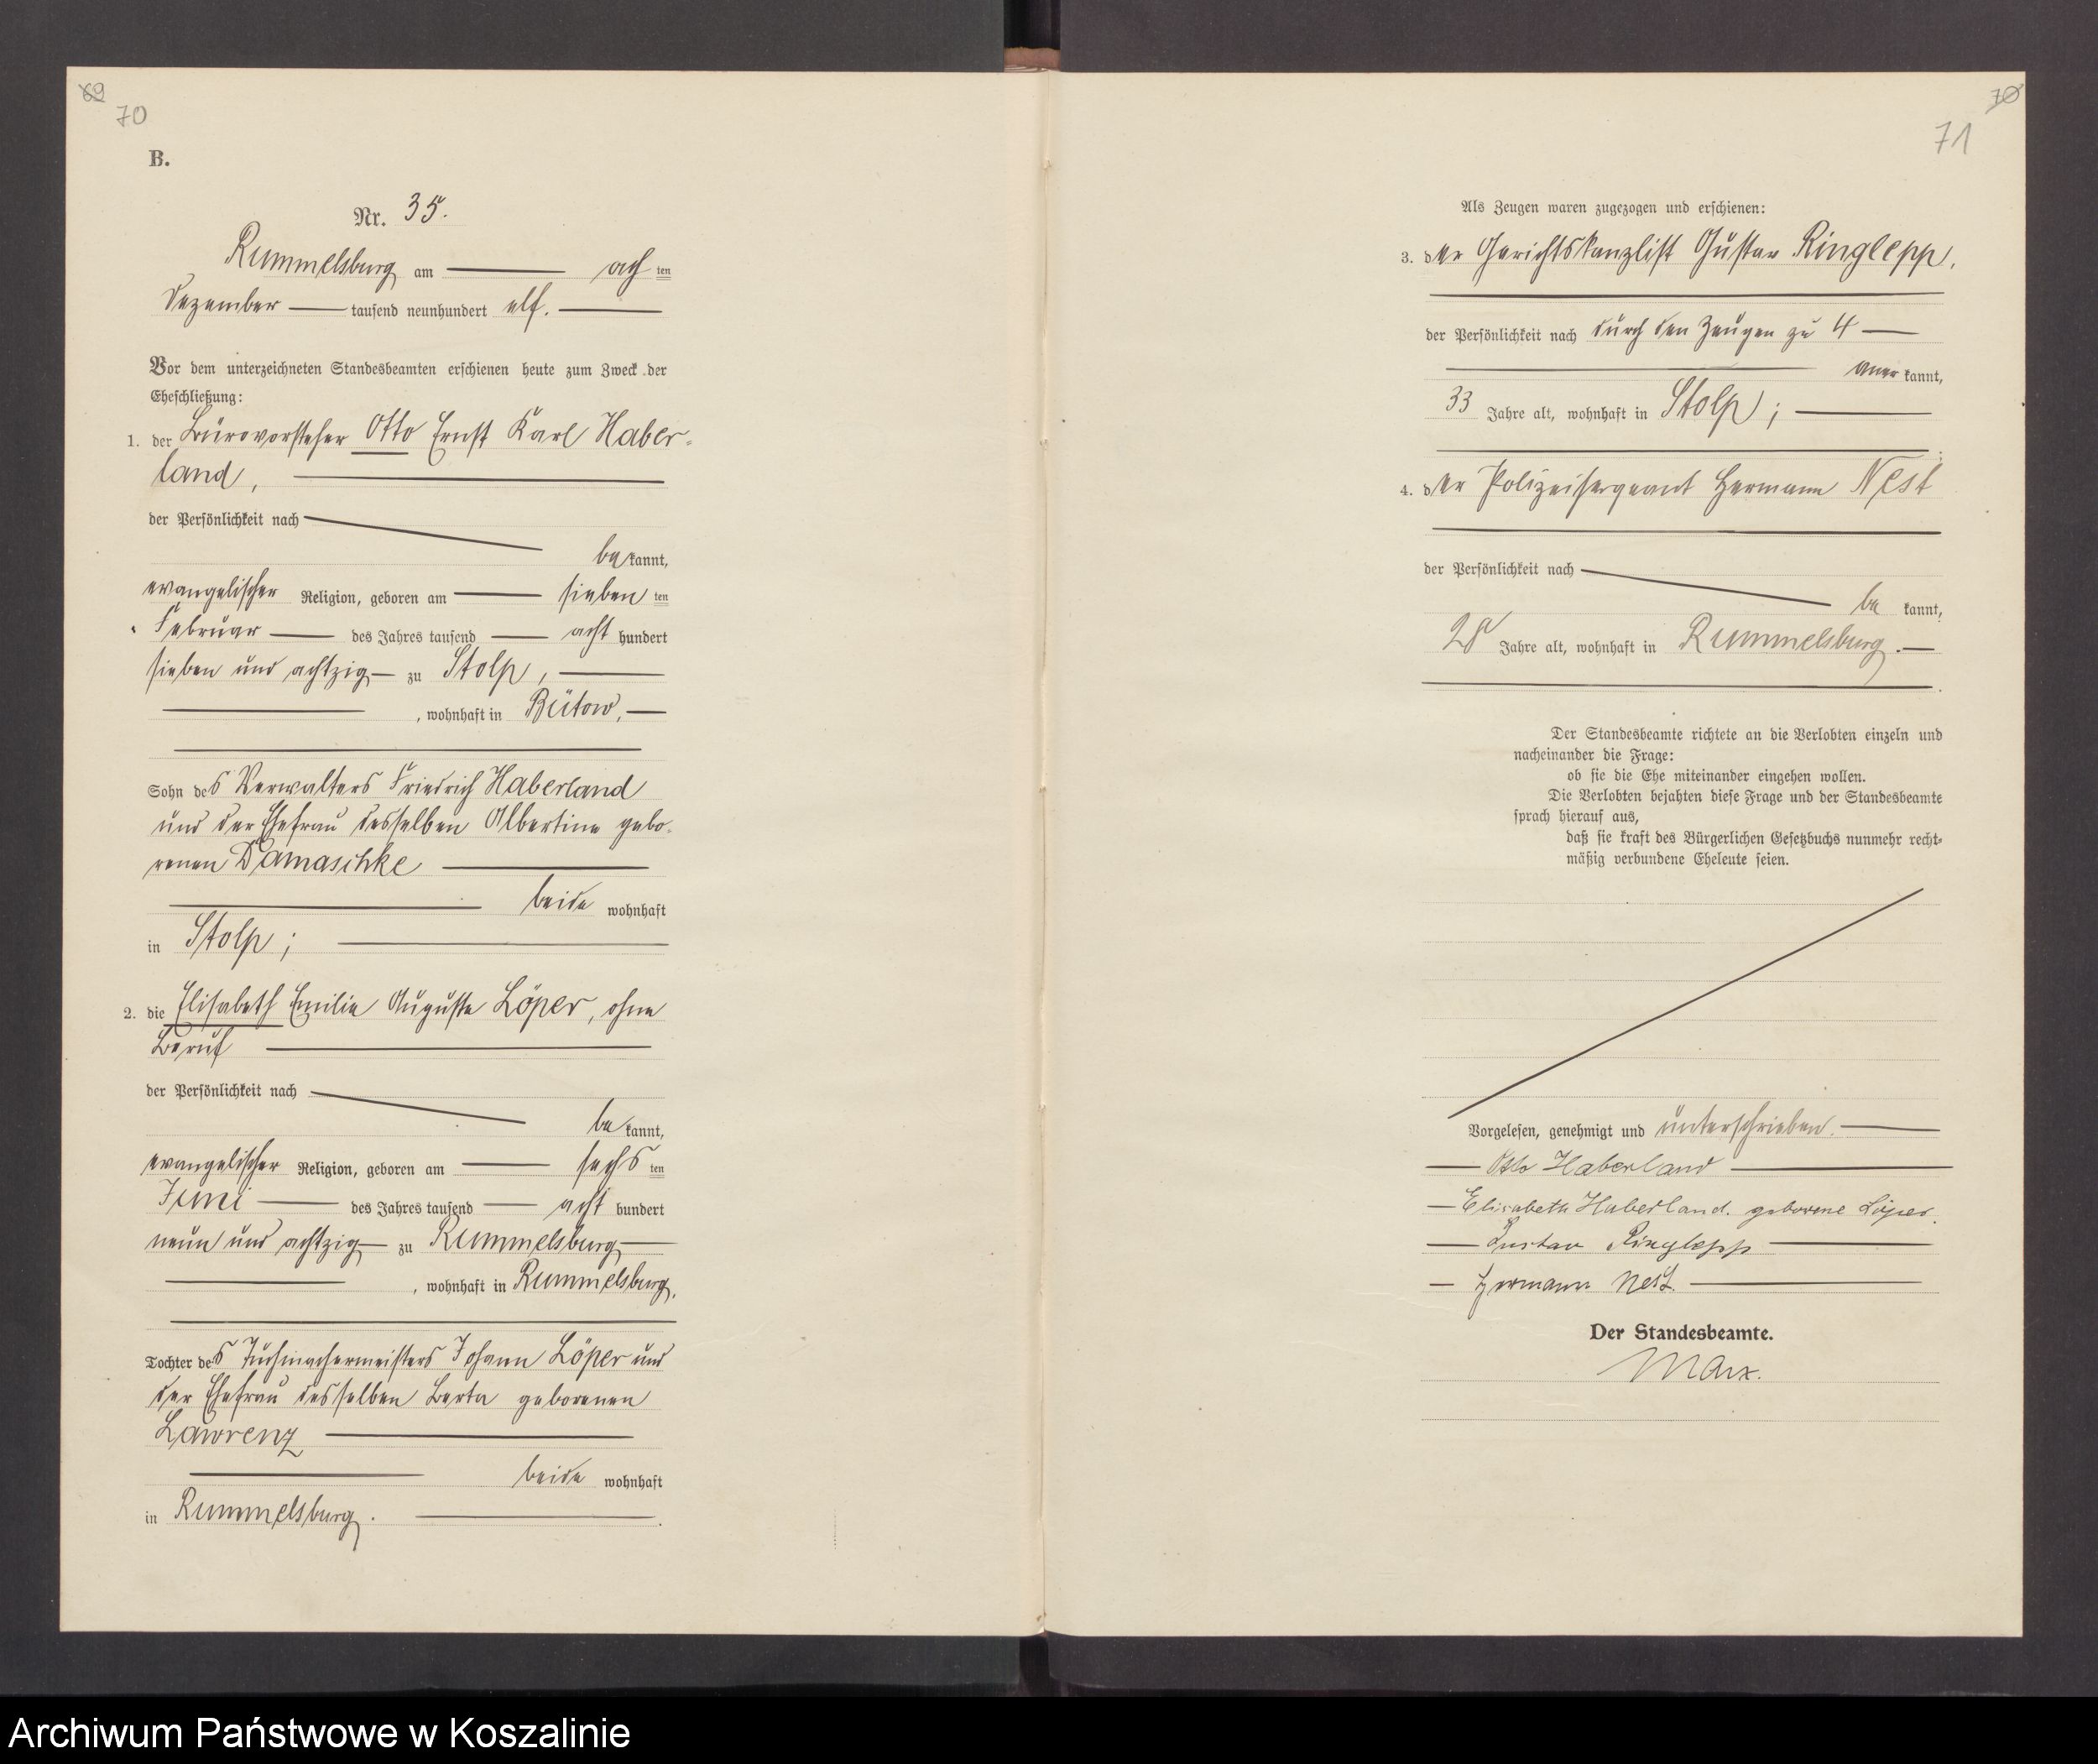 69
70
B.
Nr. 35.
Rummelsburg am acht ten
Dezember tausend neunhundert elf.
Vor dem unterzeichneten Standesbeamten erschienen heute zum Zweck der
Eheschließung:
1. der Bürovorsteher Otto Ernst Karl Haber-
land,
der Persönlichkeit nach
be kannt,
evangelischer Religion, geboren am sieben ten
Februar des Jahres tausend acht hundert
sieben und achtzig zu Stolp,
, wohnhaft in Bütow,
Sohn des Verwalters Friedrich Haberland
und der Ehefrau desselben Albertine gebo-
renen Damaschke
beide wohnhaft
in Stolp;
2. die Elisabeth Emilie Auguste Löper, ohne
Beruf
der Persönlichkeit nach
be kannt,
evangelischer Religion, geboren am sechs ten
Juni des Jahres tausend acht hundert
neun und achtzig zu Rummelsburg
, wohnhaft in Rummelsburg,
Tochter des Tuchmachermeisters Johann Löper und
der Ehefrau desselben Berta geborenen
Lawrenz
beide wohnhaft
in Rummelsburg.
70
71
Als Zeugen waren zugezogen und erschienen:
3. der Gerichtskanzlist Gustav Ringlepp,
der Persönlichkeit nach durch den Zeugen zu 4
aner kannt,
33 Jahre alt, wohnhaft in Stolp;
4. der Polizeisergeant Hermann Nest
der Persönlichkeit nach
be kannt,
28 Jahre alt, wohnhaft in Rummelsburg.
Der Standesbeamte richtete an die Verlobten einzeln und
nacheinander die Frage:
ob sie die Ehe miteinander eingehen wollen.
Die Verlobten bejahten diese Frage und der Standesbeamte
sprach hierauf aus,
daß sie kraft des Bürgerlichen Gesetzbuchs nunmehr recht-
mäßig verbundene Eheleute seien.
Vorgelesen, genehmigt und unterschrieben.
Otto Haberland
Elisabeth Haberland. geborene Löper.
Gustav Ringlepp
Hermann Nest.
Der Standesbeamte.
Marx.
Archiwum Państwowe w Koszalinie